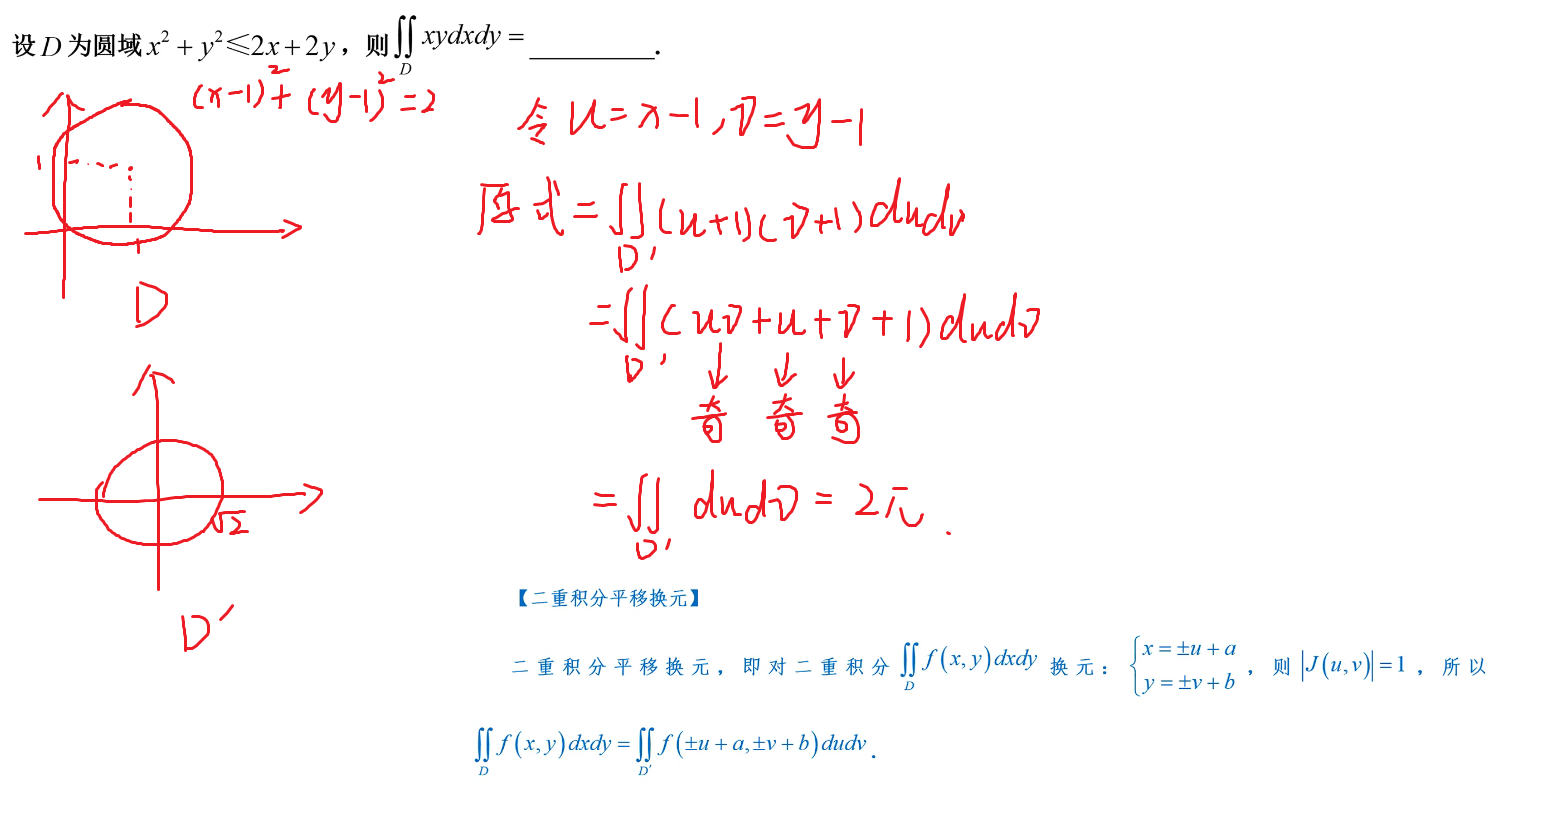 设D为圆域x²+y²≤2x+2y，则∬_D xydxdy=__________.
(x-1)²+(y-1)²=2
1
1
D
令 u=x-1,v=y-1
原式=∬_D'(u+1)(v+1)dudv
=∬_D'(uv+u+v+1)dudv
↓ ↓ ↓
奇 奇 奇
=∬_D' dudv=2π.
√2
D'
【二重积分平移换元】
二重积分平移换元，即对二重积分∬_D f(x,y)dxdy换元：{x=±u+a y=±v+b，则|J(u,v)|=1，所以
∬_D f(x,y)dxdy=∬_D' f(±u+a,±v+b)dudv.